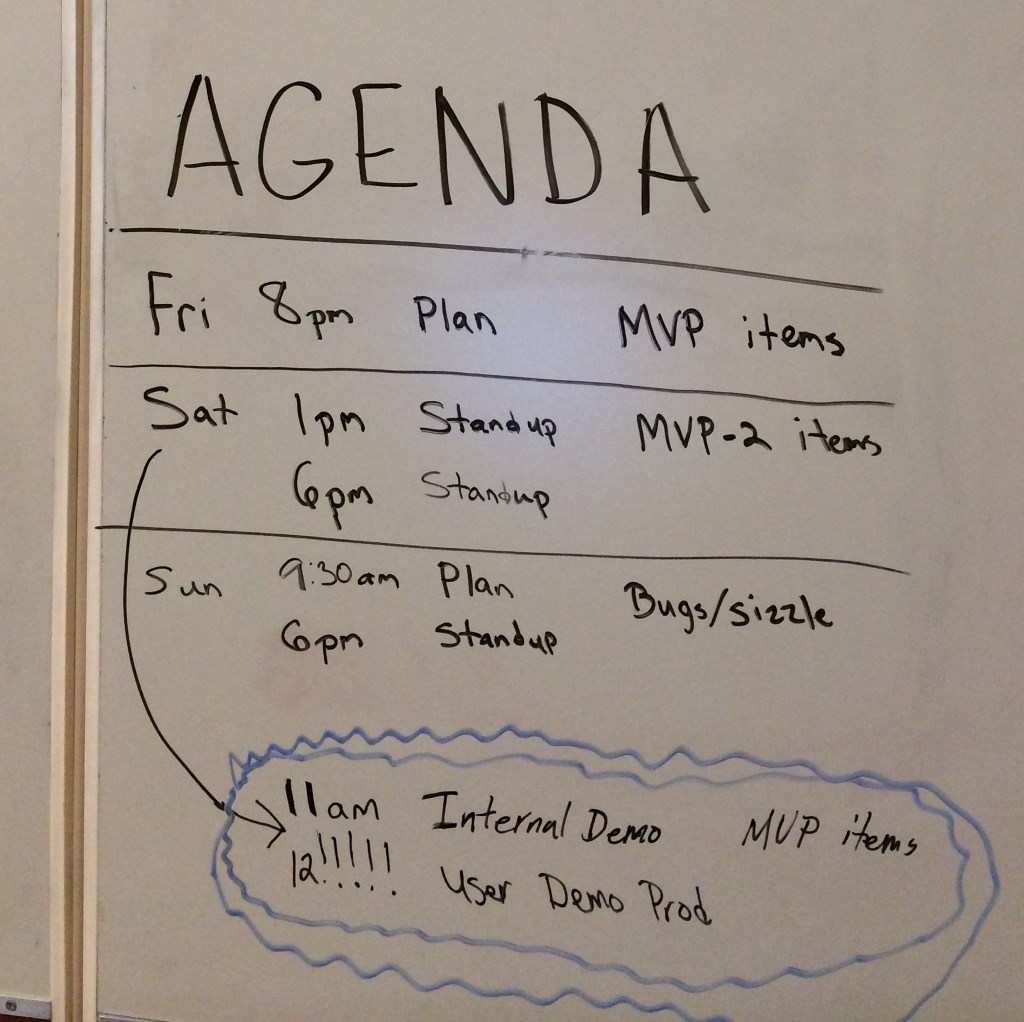 AGENDA
Fri 8pm Plan MVP items
Sat 1pm Standup MVP-2 items
6pm Standup
Sun 9:30am Plan Bugs/sizzle
6pm Standup
11am Internal Demo MVP items
12!!!!! User Demo Prod